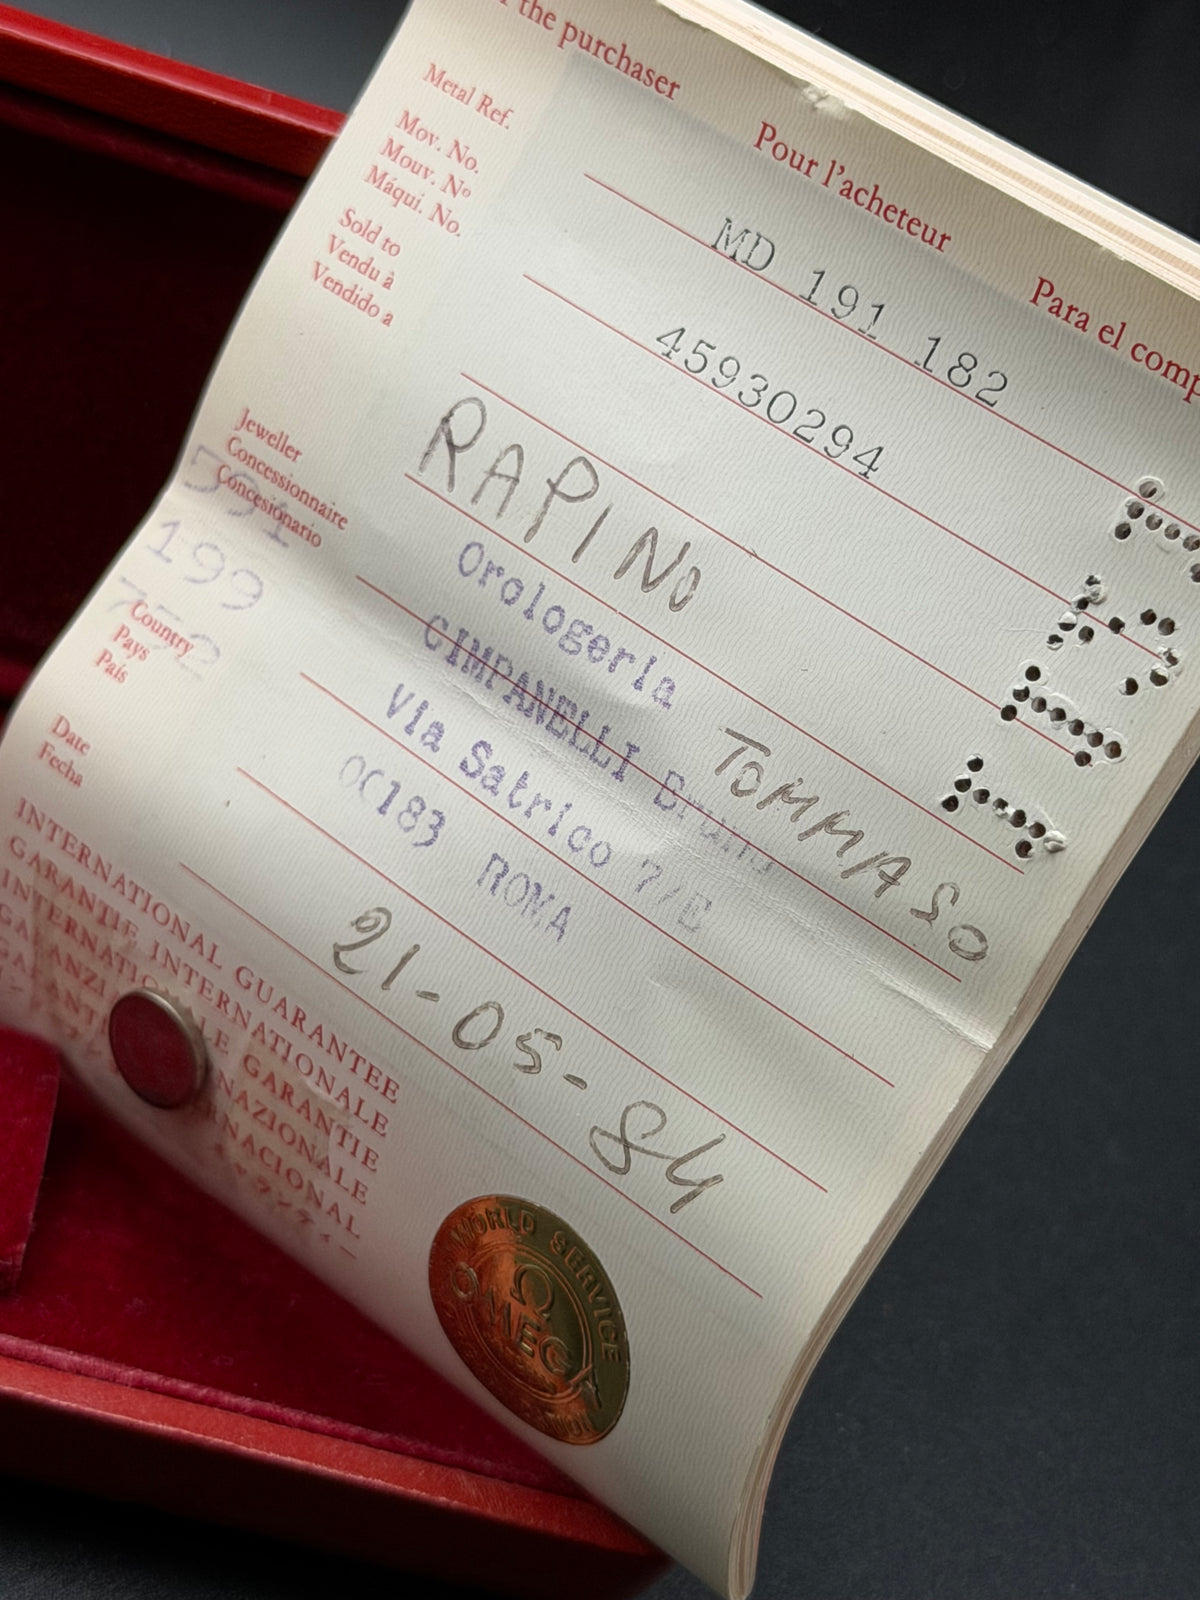 the purchaser Pour l'acheteur Para el comp
Metal Ref. MD 191 182
Mov. No. 45930294
Mouv. Nº
Máqui. No.
Sold to RAPINO TOMMASO
Vendu à
Vendido a
Jeweller Orologeria
Concessionnaire CIMPANELLI Bruno
Concesionario Via Satrico 7/E
00183 ROMA
199
Country
Pays
País
Date 21-05-84
Fecha
INTERNATIONAL GUARANTEE
GARANTIE INTERNATIONALE
INTERNATIONALE GARANTIE
GARANZIA INTERNAZIONALE
INTERNACIONAL
WORLD SERVICE
Ω
OMEGA